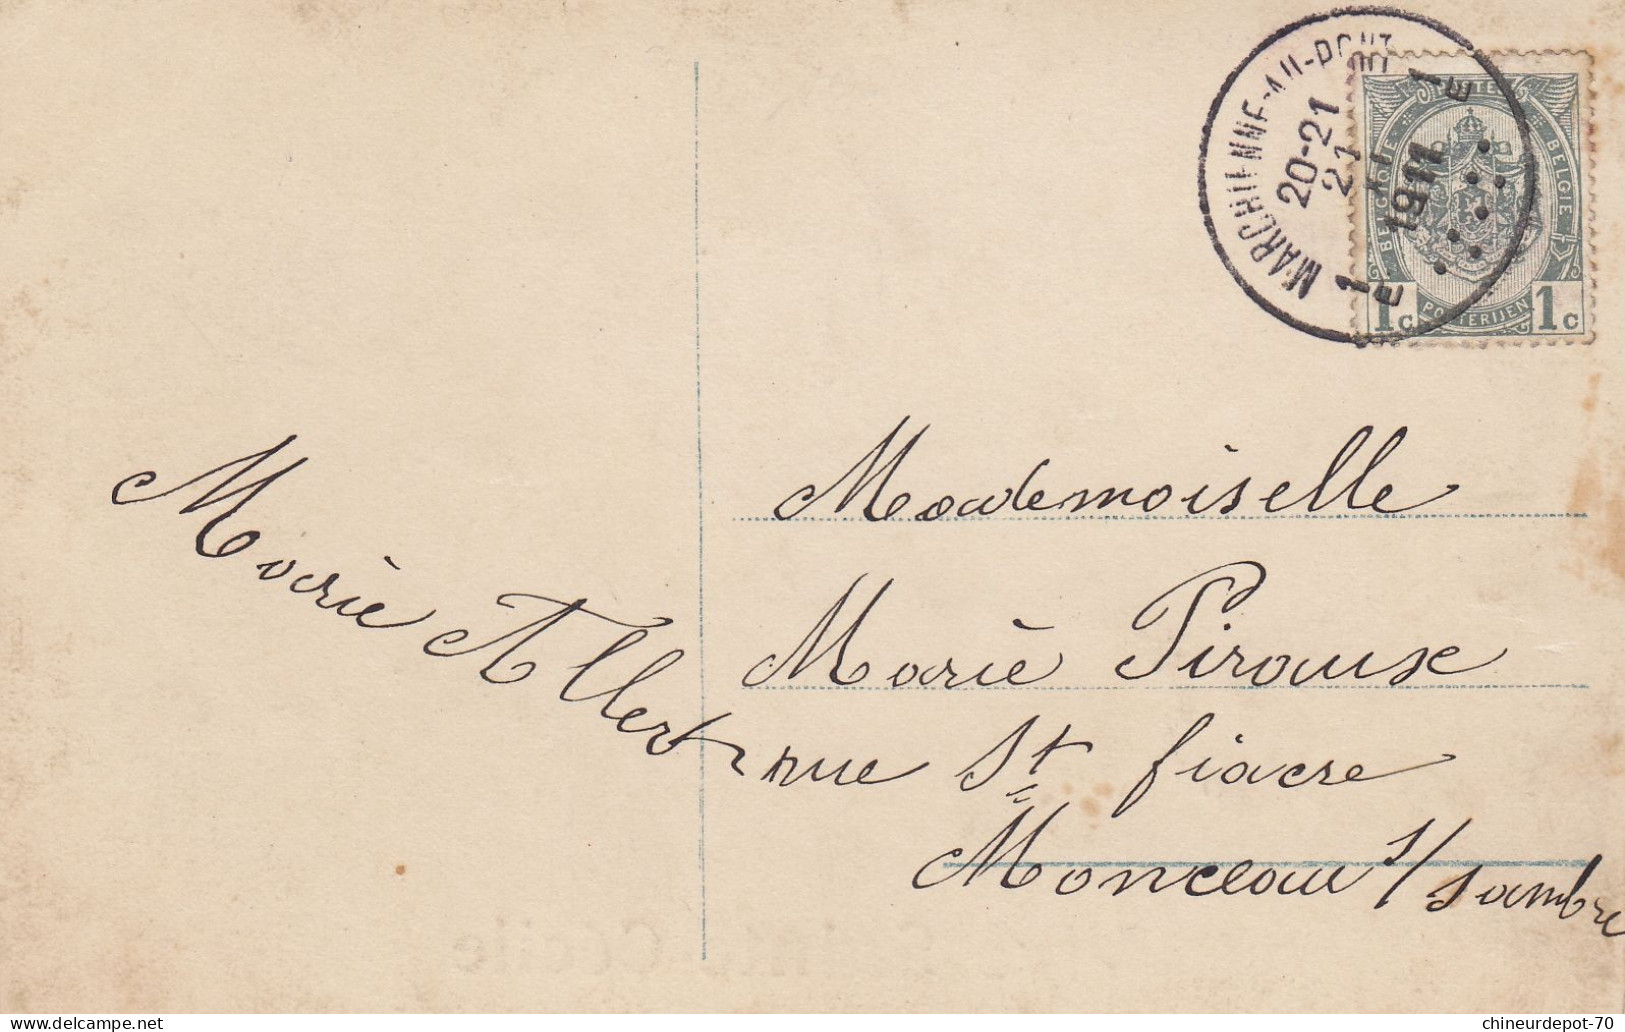 MARCHIENNE-AU-PONT
20-21
21 XI
1911
1 E
1 E
POSTES
BELGIQUE
BELGIË
POSTERIJEN
1c 1c
Mademoiselle
Marie Piraux
rue St fiacre
Monceau s/sambre
Marie Allert
delcampe.net
chineurdepot-70